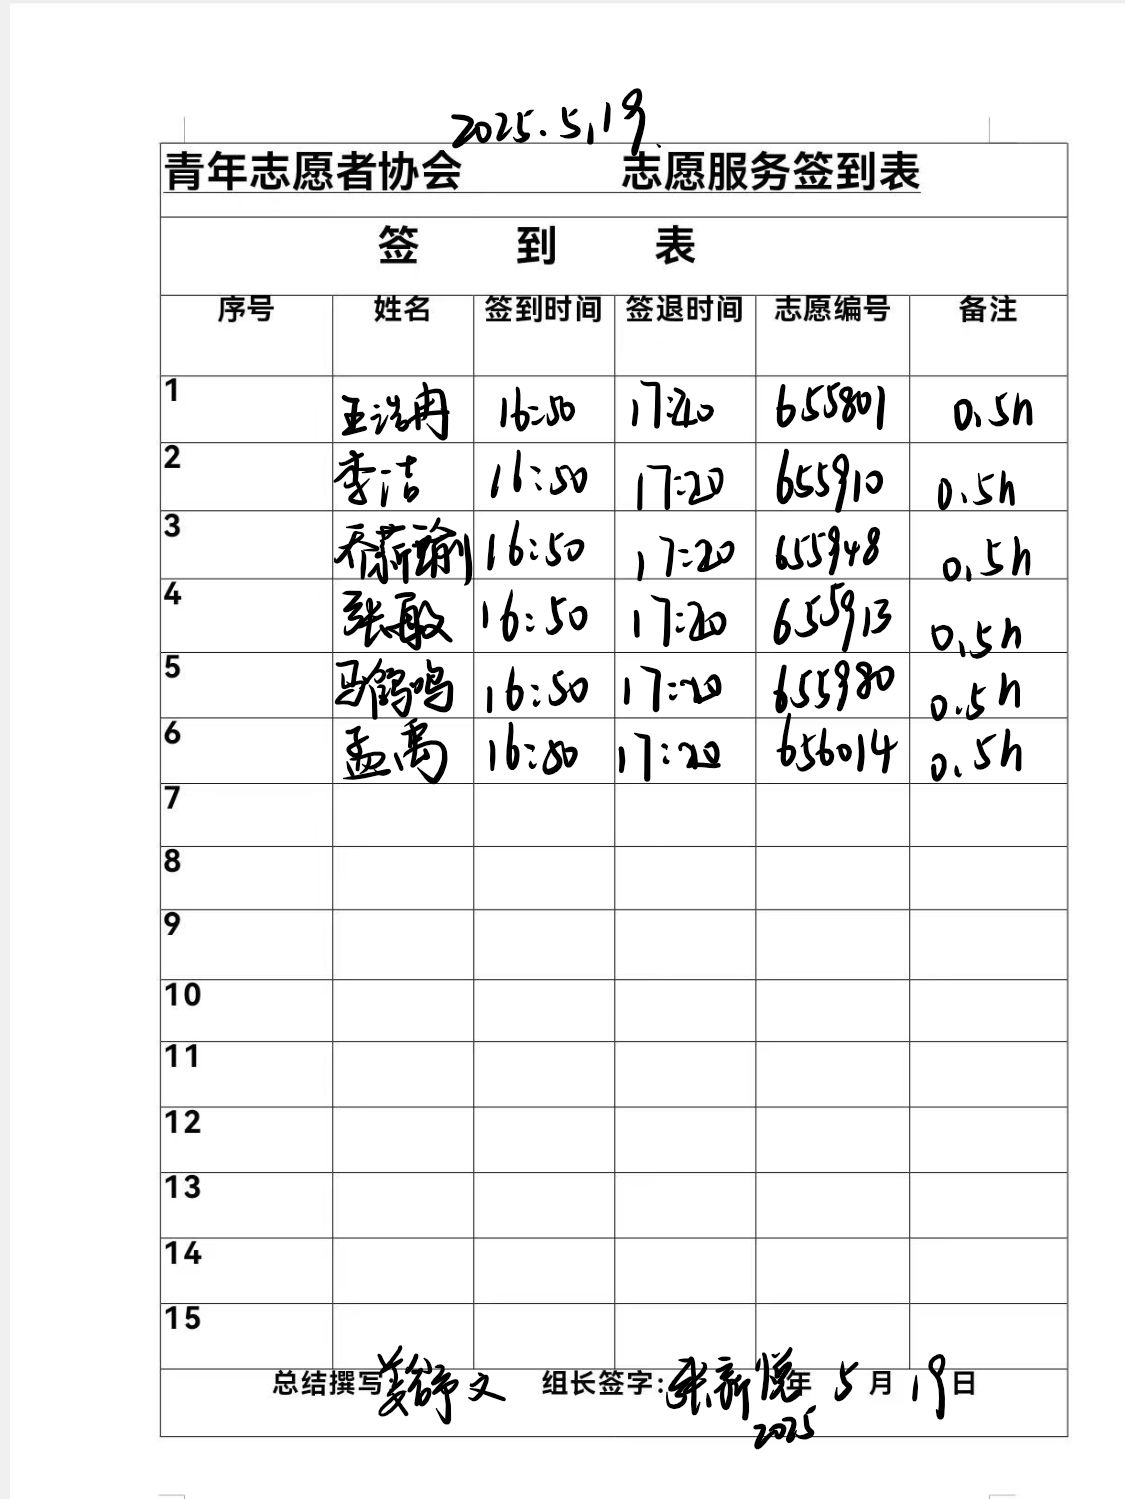 2025.5.19
青年志愿者协会 志愿服务签到表
签 到 表
序号 姓名 签到时间 签退时间 志愿编号 备注
1 王浩冉 16:50 17:20 655801 0.5h
2 李洁 16:50 17:20 655910 0.5h
3 乔薪瑜 16:50 17:20 655948 0.5h
4 张敏 16:50 17:20 655913 0.5h
5 马鹤鸣 16:50 17:20 655980 0.5h
6 孟禹 16:50 17:20 656014 0.5h
7
8
9
10
11
12
13
14
15
总结撰写 姜舒文 组长签字: 张新悦 2025 年 5 月 19 日